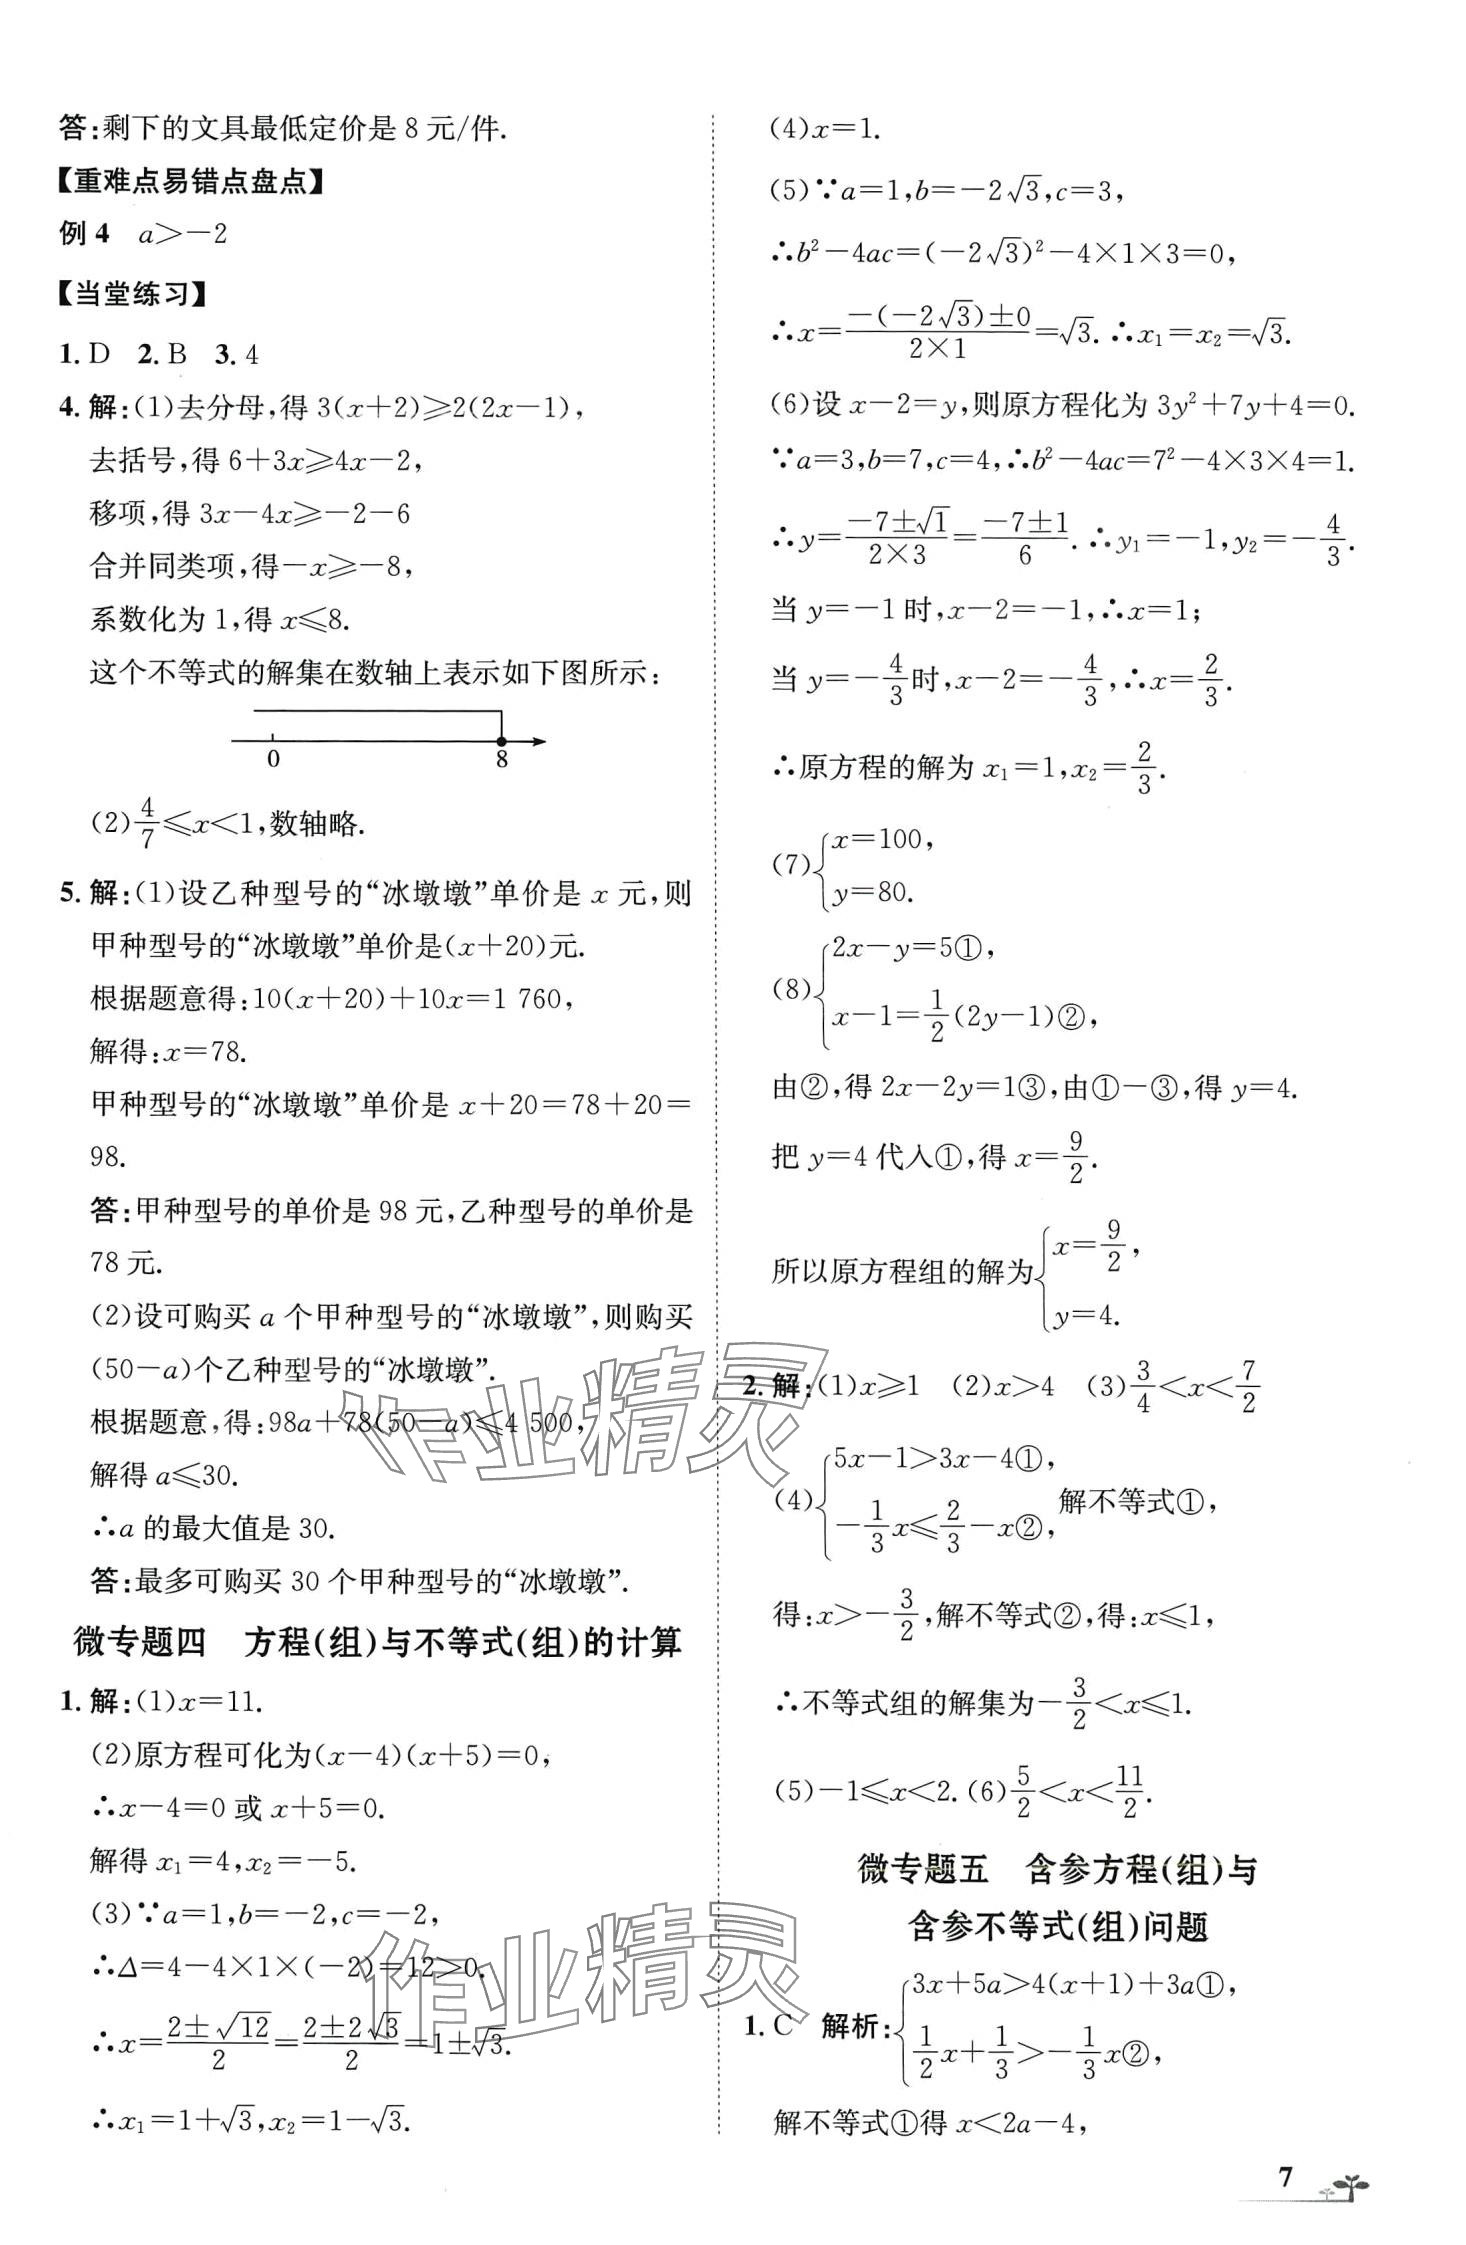 答:剩下的文具最低定价是 8 元/件.
【重难点易错点盘点】
例 4 a>-2
【当堂练习】
1. D 2. B 3. 4
4. 解:(1)去分母,得 3(x+2)≥2(2x-1),
去括号,得 6+3x≥4x-2,
移项,得 3x-4x≥-2-6
合并同类项,得-x≥-8,
系数化为 1,得 x≤8.
这个不等式的解集在数轴上表示如下图所示:
0 8
(2)4/7≤x<1,数轴略.
5. 解:(1)设乙种型号的“冰墩墩”单价是 x 元,则
甲种型号的“冰墩墩”单价是(x+20)元.
根据题意得:10(x+20)+10x=1 760,
解得:x=78.
甲种型号的“冰墩墩”单价是 x+20=78+20=
98.
答:甲种型号的单价是 98 元,乙种型号的单价是
78 元.
(2)设可购买 a 个甲种型号的“冰墩墩”,则购买
(50-a)个乙种型号的“冰墩墩”.
根据题意,得:98a+78(50-a)≤4 500,
解得 a≤30.
∴a 的最大值是 30.
答:最多可购买 30 个甲种型号的“冰墩墩”.
微专题四 方程(组)与不等式(组)的计算
1. 解:(1)x=11.
(2)原方程可化为(x-4)(x+5)=0,
∴x-4=0 或 x+5=0.
解得 x₁=4,x₂=-5.
(3)∵a=1,b=-2,c=-2,
∴Δ=4-4×1×(-2)=12>0.
∴x=(2±√12)/2=(2±2√3)/2=1±√3.
∴x₁=1+√3,x₂=1-√3.
(4)x=1.
(5)∵a=1,b=-2√3,c=3,
∴b²-4ac=(-2√3)²-4×1×3=0,
∴x=(-(-2√3)±0)/(2×1)=√3. ∴x₁=x₂=√3.
(6)设 x-2=y,则原方程化为 3y²+7y+4=0.
∵a=3,b=7,c=4,∴b²-4ac=7²-4×3×4=1.
∴y=(-7±√1)/(2×3)=(-7±1)/6. ∴y₁=-1,y₂=-4/3.
当 y=-1 时,x-2=-1,∴x=1;
当 y=-4/3时,x-2=-4/3,∴x=2/3.
∴原方程的解为 x₁=1,x₂=2/3.
(7){x=100,
y=80.
(8){2x-y=5①,
x-1=1/2(2y-1)②,
由②,得 2x-2y=1③,由①-③,得 y=4.
把 y=4 代入①,得 x=9/2.
所以原方程组的解为{x=9/2,
y=4.
2. 解:(1)x≥1 (2)x>4 (3)3/4<x<7/2
(4){5x-1>3x-4①,
-1/3x≤2/3-x②, 解不等式①,
得:x>-3/2,解不等式②,得:x≤1,
∴不等式组的解集为-3/2<x≤1.
(5)-1≤x<2. (6)5/2<x<11/2.
微专题五 含参方程(组)与
含参不等式(组)问题
1. C 解析:{3x+5a>4(x+1)+3a①,
1/2x+1/3>-1/3x②,
解不等式①得 x<2a-4,
7
作业精灵
作业精灵